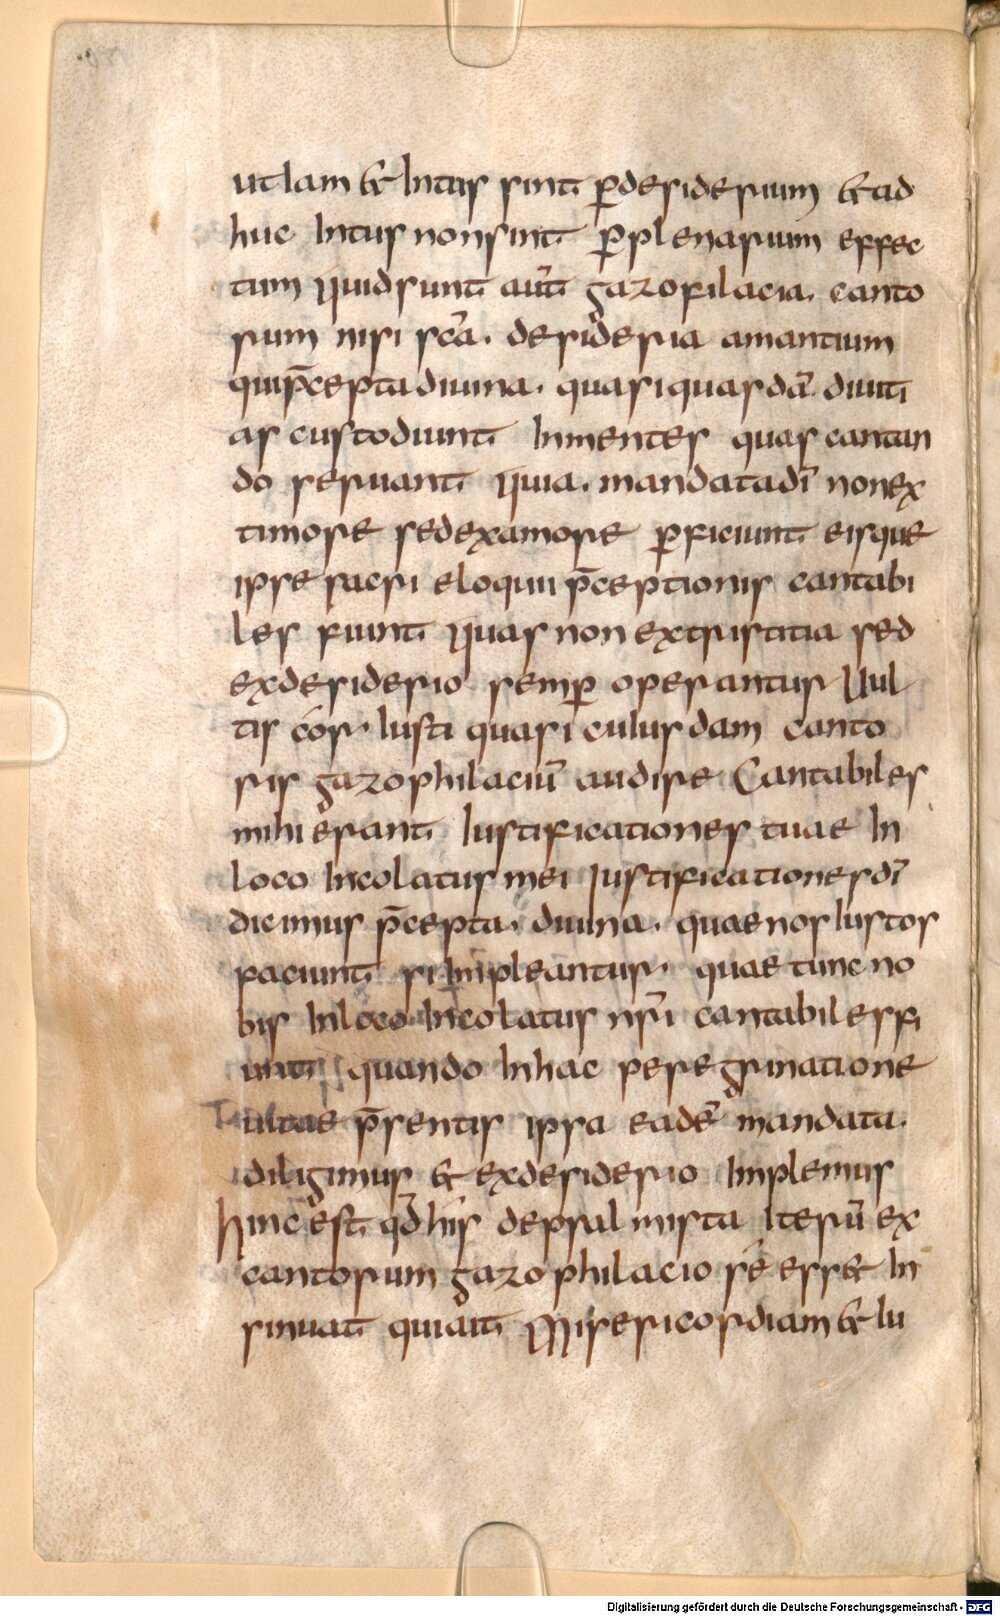 ut iam & intus sint p̄desiderium & ad
huc intus non sint p̄plenarium effec
tum quid sunt aut̄ gazofilacia. canto
rum nisi sc̄a. desideria amantium
qui p̄cepta diuina. quasi quasdā diuiti
as custodiunt in mentes quas cantan
do seruant. quia. mandata dī non ex
timore sed ex amore p̄ficiunt eisque
ipse sacri eloquii p̄ceptionis cantabi
les fiunt quas non ex tristitia sed
ex desiderio semp̄ operantur Uul
tis cór. iusti quasi cuiusdam canto
ris gazophilaciū audire Cantabiles
mihi erant iustificationes tuae in
loco incolatus mei iustificationes dī
dicimus p̄cepta. diuina. quae nos iustos
faciunt si impleantur. quae tunc no
bis in loco incolatus nr̄i cantabiles fi
unt quando in hac peregrinatione
uitae p̄sentis ipsa eadē mandata.
diligimus & ex desiderio implemus
hinc est qd̄ his de psalmista iterū ex
cantorum gazophilacio sé esse & in
sinuat qui ait Misericordiam & iu
Digitalisierung gefördert durch die Deutsche Forschungsgemeinschaft - DFG